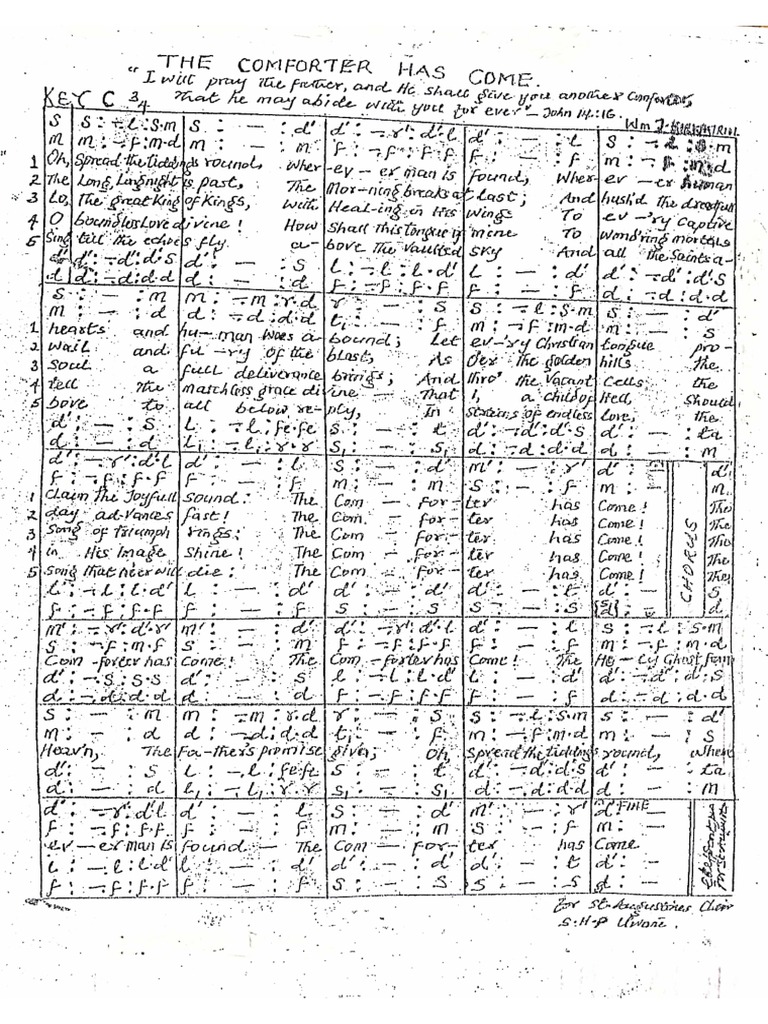 THE COMFORTER HAS COME.
"I will pray the father, and He shall give you another Comforter,
KEY C 3/4 That he may abide with you for ever" - John 14:16.
Wm J. KIRKPATRICK
S | S : -. l : S . m | S : — : d' | d' : -. r' : d' . l | d' : — : l | S : -. l : S . m
m | m : -. f : m . d | m : — : m | f : -. f : f . f | f : — : f | m : -. f : m . d
1 Oh, Spread the tiddings round, Wher- ev — er man is found, Wher ev — er human
2 The Long, Long night is past, The Mor-ning breaks at last; And hush'd the dreadfull
3 Lo, The great King of Kings, With Heal-ing in His Wings To ev — 'ry Captive
4 O boundless Love divine! How Shall this tongue of mine To Wond'ring mortals
5 Sing till the echoes fly a- bove the Vaulted Sky And all the Saints a-
d' | d' : -. d' : d' . S | d' : — : S | l : -. l : l . d' | l : — : d' | d' : -. d' : d' . S
d | d : -. d : d . d | d : — : d | f : -. f : f . f | f : — : f | d : -. d : d . d
S : — : m | m : -. m : r . d | r : — : S | S : -. l : S . m | S : — : d'
m : — : d | d : -. d : d . d | t₁ : — : f | m : -. f : m . d | m : — : S
1 hearts and hu — man woes a- bound; Let ev — 'ry Christian tongue pro-
2 wail and fu — ry of the blast, As O'er the golden hills the
3 Soul a full deliverance brings; And thro' the Vacant Cells the
4 tell the matchless grace divine — That I, a child of Hell, Should
5 bove to all below re- ply, In Streams of endless love, the
d' : — : S | l : -. l : fe . fe | S : — : t | d' : -. d' : d' . S | d' : — : ta
d : — : d | l₁ : -. l₁ : r . r | S₁ : — : S₁ | d : -. d : d . d | d : — : m
d' : -. r' : d' . l | d' : — : l | S : — : d' | m' : — : r' | d' : — | d'
f : -. f : f . f | f : — : f | m : — : m | S : — : f | m : — | m
1 Claim the Joyfull sound: The Com — for — ter has Come! The
2 day advances fast! The Com — for — ter has Come! The
3 Song of Triumph rings: The Com — for — ter has Come! The
4 in His Image Shine! The Com — for — ter has Come! The
5 Song that ne'er will die: The Com — for — ter has Come! The
CHORUS
l : -. l : l . d' | l : — : d' | d' : — : d' | d' : — : t | d' : — | S
f : -. f : f . f | f : — : f | S : — : S | S : — : S | : — | d
m' : -. r' : d' . r' | m' : — : d' | d' : -. r' : d' . l | d' : — : l | S : -. l : S . m
S : -. f : m . f | S : — : m | f : -. f : f . f | f : — : f | m : -. f : m . d
Com -forter has Come! The Com -forter has Come! The Ho — ly Ghost from
d' : -. S : S . S | d' : — : S | l : -. l : l . d' | l : — : d' | d' : -. d' : d' . S
d : -. d : d . d | d : — : d | f : -. f : f . f | f : — : f | d : -. d : d . d
S : — : m | m : -. m : r . d | r : — : S | S : -. l : S . m | S : — : d'
m : — : d | d : -. d : d . d | t₁ : — : f | m : -. f : m . d | m : — : S
Heav'n, The Fa-ther's promise given; Oh, Spread the tiddings round, Wher
d' : — : S | l : -. l : fe . fe | S : — : t | d' : -. d' : d' . S | d' : — : ta
d : — : d | l₁ : -. l₁ : r . r | S₁ : — : S₁ | d : -. d : d . d | d : — : m
d' : -. r' : d' . l | d' : — : l | S : — : d' | m' : — : r' | d' FINE —
f : -. f : f . f | f : — : f | m : — : m | S : — : f | m : —
ev — er man is found — The Com — for — ter has Come
l : -. l : l . d' | l : — : d' | d' : — : d' | d' : — : t | d' : —
f : -. f : f . f | f : — : f | S : — : S | S : — : S | d : —
For St. Augustines Choir
S.H.P Uwani.